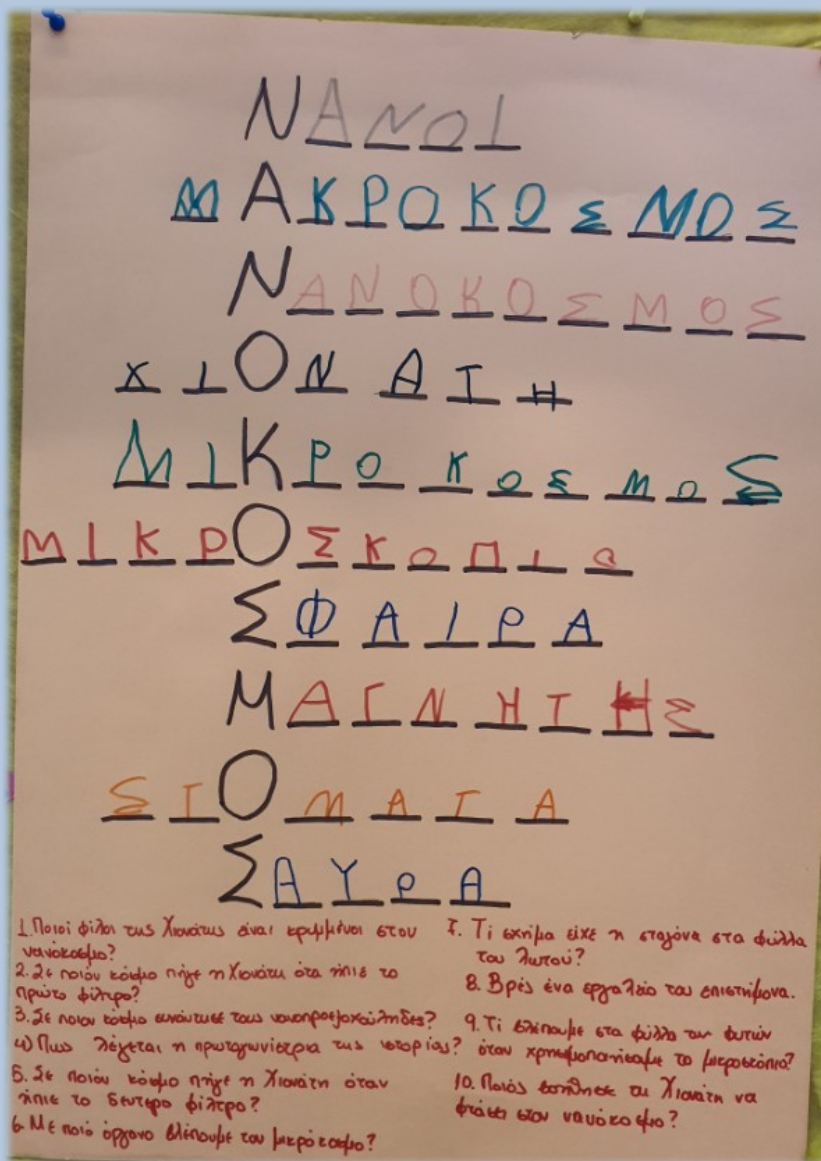 ΝΑΝΟΙ
ΜΑΚΡΟΚΟΣΜΟΣ
ΝΑΝΟΚΟΣΜΟΣ
ΧΙΟΝΑΤΗ
ΜΙΚΡΟΚΟΣΜΟΣ
ΜΙΚΡΟΣΚΟΠΙΟ
ΣΦΑΙΡΑ
ΜΑΓΝΗΤΗΣ
ΣΤΟΜΑΤΑ
ΣΑΥΡΑ
1. Ποιοί φίλοι της Χιονάτης είναι κρυμμένοι στον
νανόκοσμο?
2. Σε ποιόν κόσμο πήγε η Χιονάτη ότα ήπιε το
πρώτο φίλτρο?
3. Σε ποιον κόσμο συνάντησε τους νανοπροεξοχούληδες?
4) Πως λέγεται η πρωταγωνίστρια της ιστορίας?
5. Σε ποιόν κόσμο πήγε η Χιονάτη όταν
ήπιε το δευτερο φίλτρο?
6. Με ποιό όργανο βλέπουμε τον μικρόκοσμο?
7. Τι σχήμα είχε η σταγόνα στα φύλλα
του λωτού?
8. Βρές ένα εργαλείο του επιστήμονα.
9. Τί βλέπουμε στα φύλλα των φυτών
όταν χρησιμοποιήσαμε το μικροσκόπιο?
10. Ποιός βοήθησε τη Χιονάτη να
φτάσει στον νανόκοσμο?